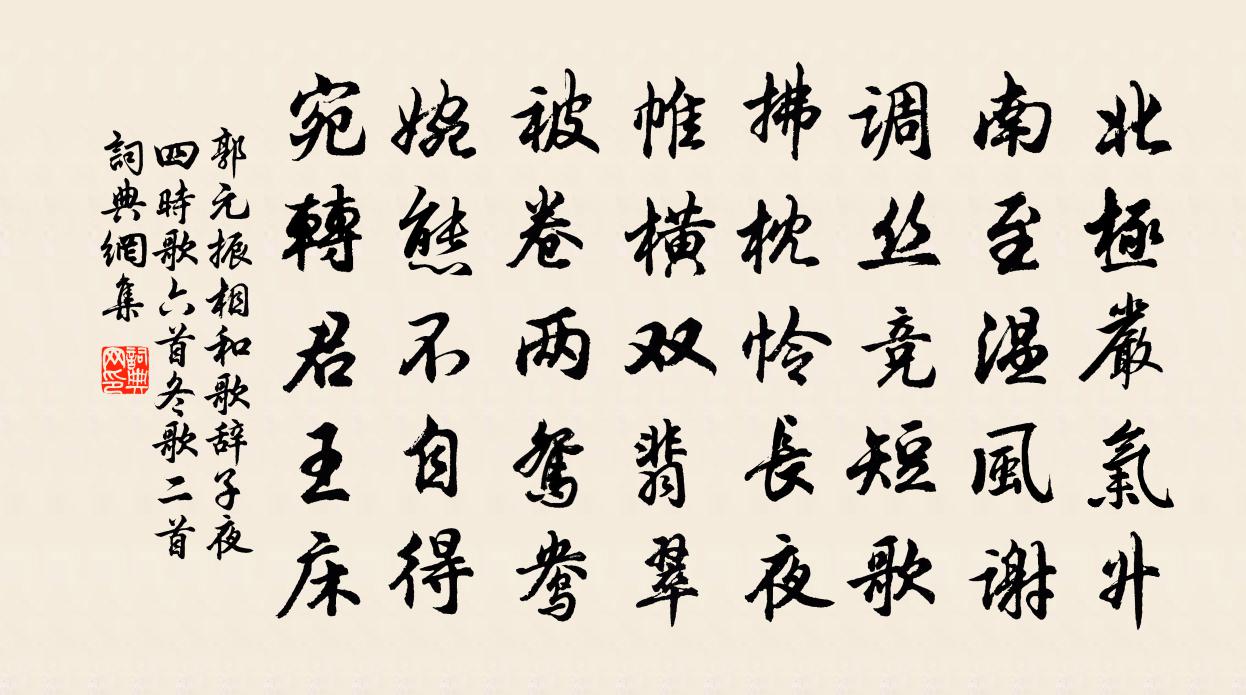 北極嚴氣升
南至温風謝
调丝竞短歌
拂枕怜長夜
帷橫双翡翠
被卷两鴛鴦
婉態不自得
宛轉君王床
郭元振相和歌辞子夜
四時歌六首冬歌二首
詞典網集
詞典网印